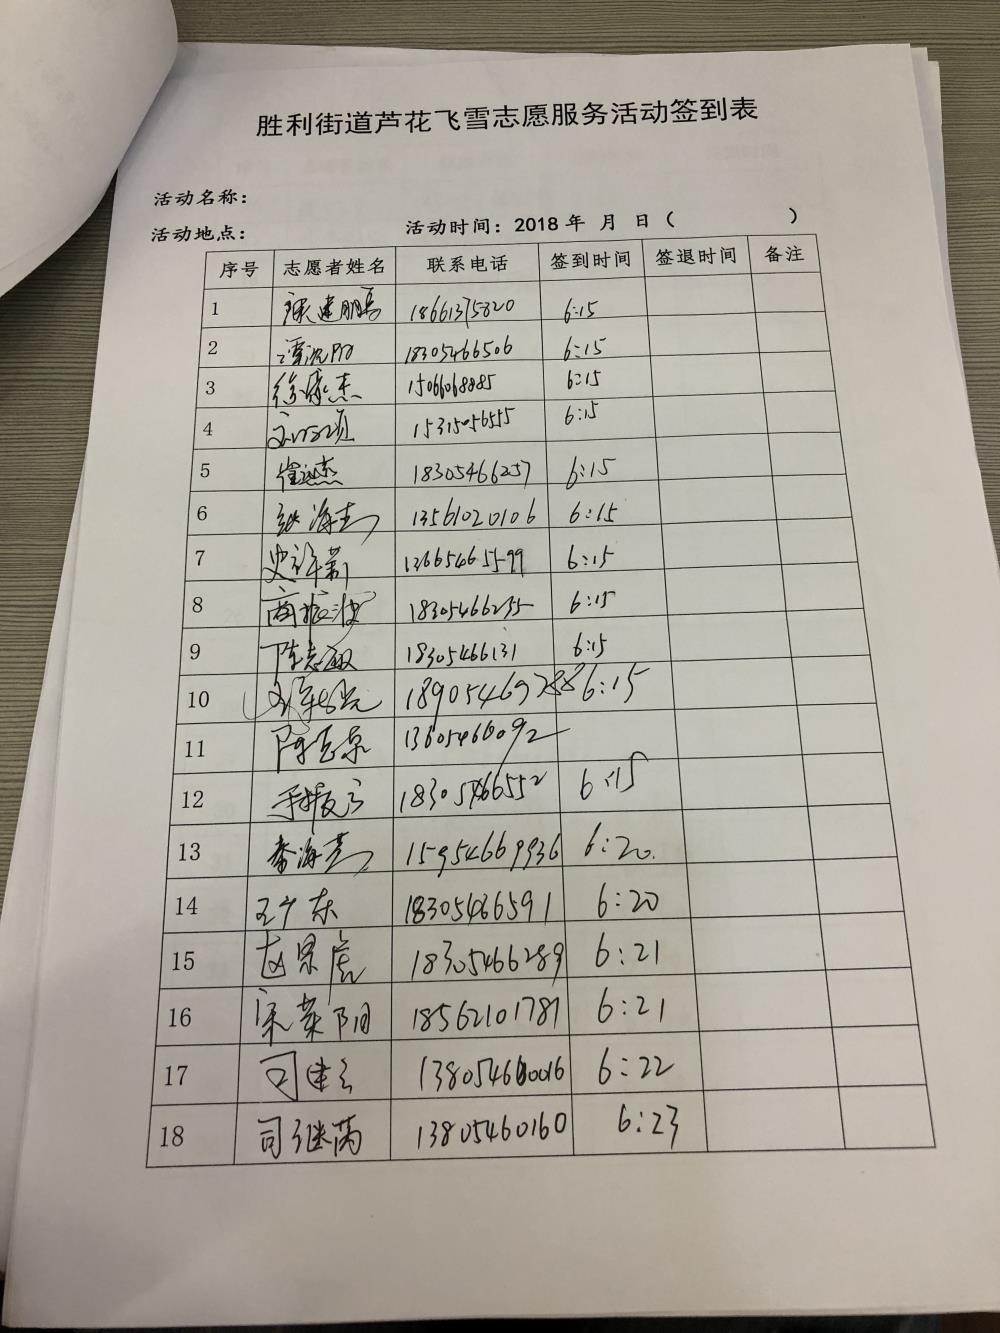 胜利街道芦花飞雪志愿服务活动签到表
活动名称：
活动地点： 活动时间：2018 年 月 日（ ）
序号 志愿者姓名 联系电话 签到时间 签退时间 备注
1 18661375820 6:15
2 18305466506 6:15
3 徐家杰 15066068885 6:15
4 15315056555 6:15
5 崔延杰 18305466257 6:15
6 13561020106 6:15
7 史许新 13665465599 6:15
8 商振波 18305466235 6:15
9 陈志毅 18305466131 6:15
10 18905469288 6:15
11 13605466092
12 18305466552 6:15
13 秦海燕 15954669936 6:20
14 王广东 18305466591 6:20
15 赵景虎 18305466289 6:21
16 宋荣阳 18562101781 6:21
17 司建云 13805460016 6:22
18 司继芮 13805460160 6:23